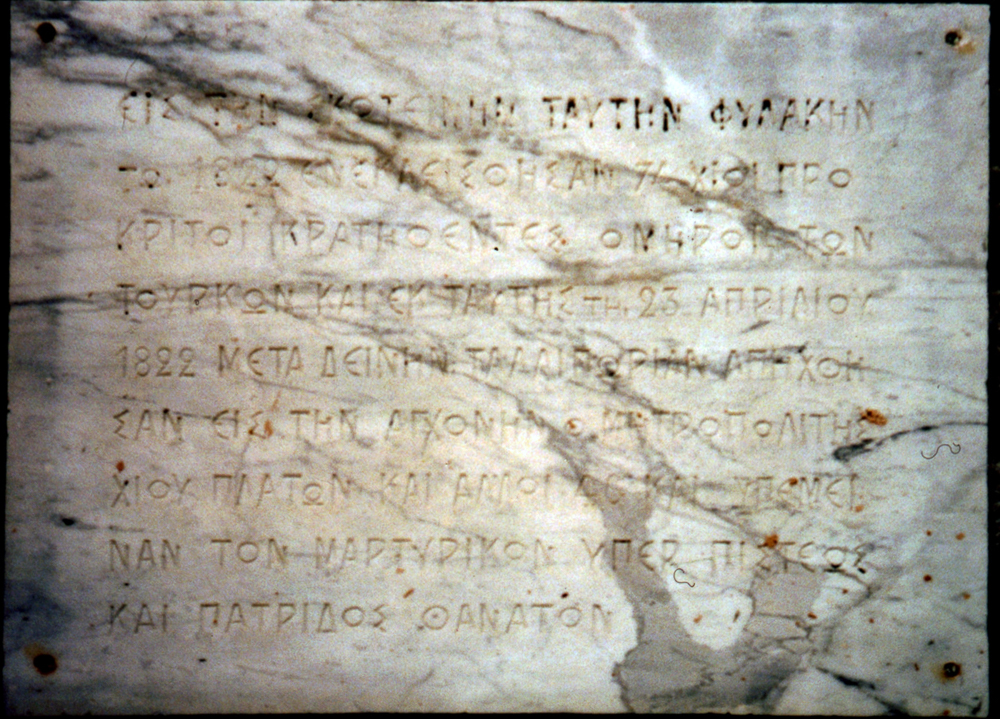 ΕΙΣ ΤΗΝ ΣΚΟΤΕΙΝΗΝ ΤΑΥΤΗΝ ΦΥΛΑΚΗΝ
ΤΩ. 1822 ΕΝΕΚΛΕΙΣΘΗΣΑΝ 74 ΧΙΟΙ ΠΡΟ
ΚΡΙΤΟΙ ΚΡΑΤΗΘΕΝΤΕΣ ΟΜΗΡΟΙ ΤΩΝ
ΤΟΥΡΚΩΝ ΚΑΙ ΕΚ ΤΑΥΤΗΣ ΤΗ. 23 ΑΠΡΙΛΙΟΥ
1822 ΜΕΤΑ ΔΕΙΝΗΝ ΤΑΛΑΙΠΩΡΙΑΝ ΑΠΗΧΘΗ
ΣΑΝ ΕΙΣ ΤΗΝ ΑΓΧΟΝΗΝ Ο ΜΗΤΡΟΠΟΛΙΤΗΣ
ΧΙΟΥ ΠΛΑΤΩΝ ΚΑΙ ΑΛΛΟΙ ΚΑΙ ΥΠΕΜΕΙ
ΝΑΝ ΤΟΝ ΜΑΡΤΥΡΙΚΟΝ ΥΠΕΡ ΠΙΣΤΕΟΣ
ΚΑΙ ΠΑΤΡΙΔΟΣ ΘΑΝΑΤΟΝ